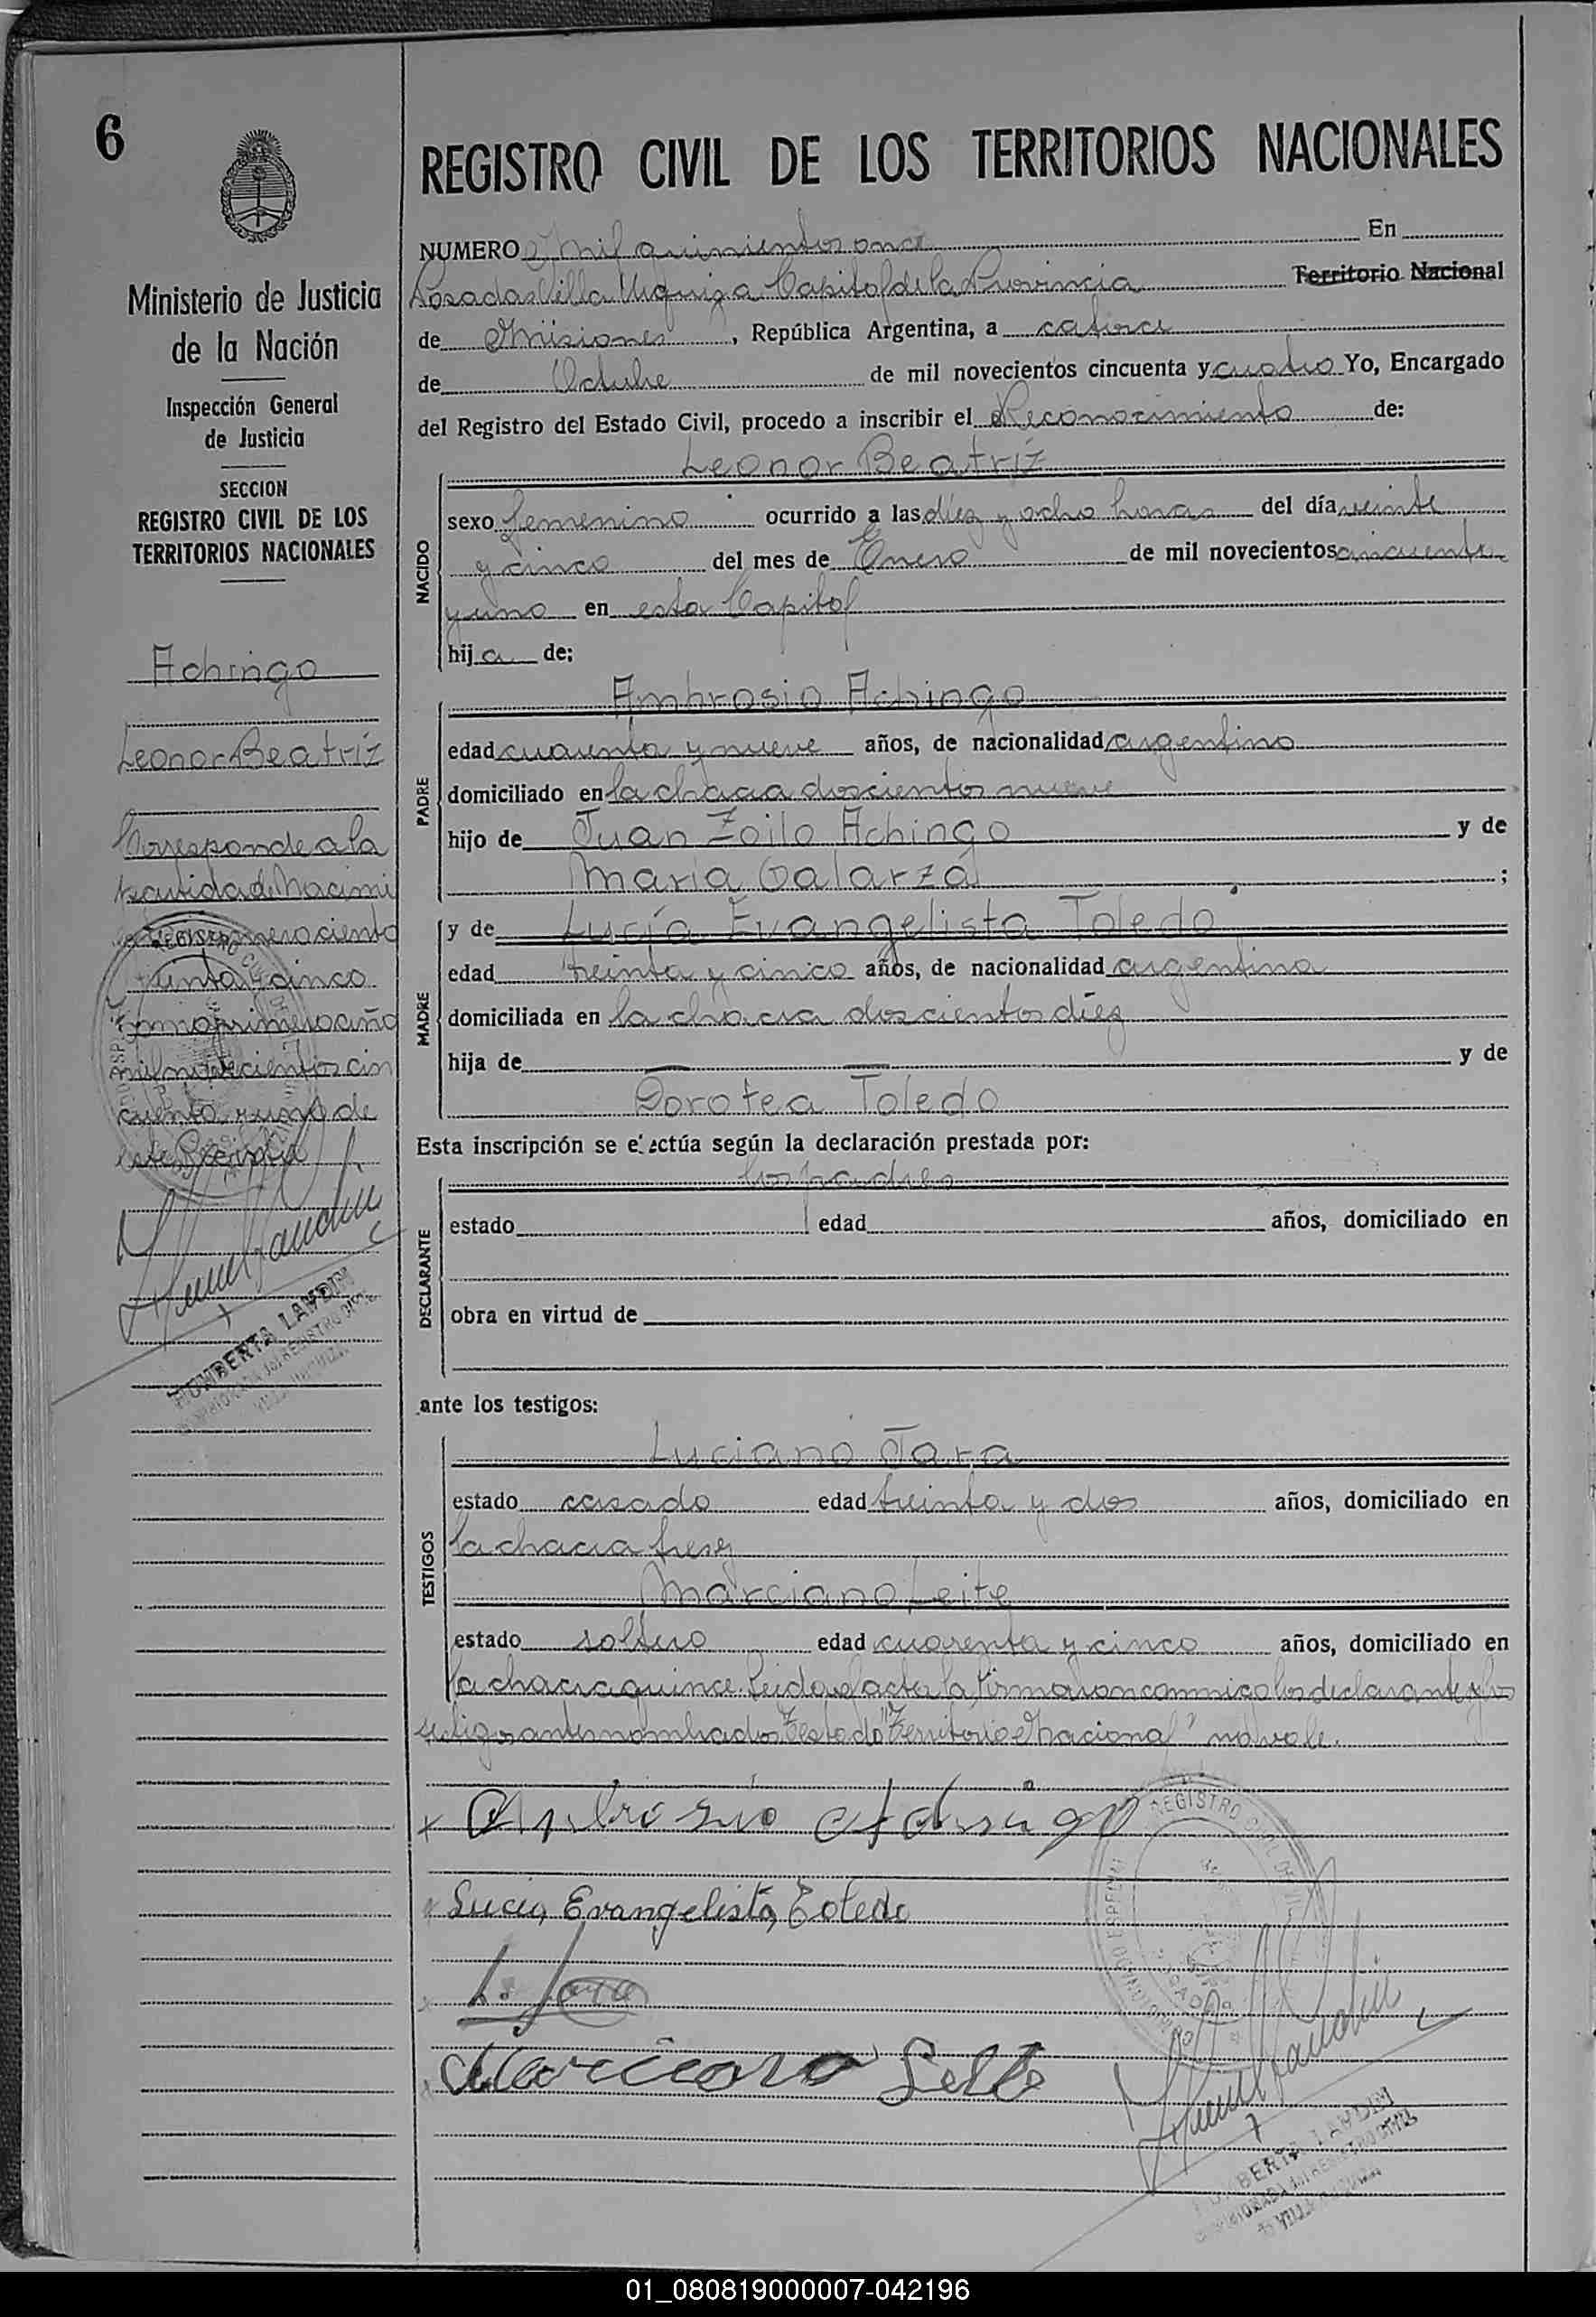 6
REGISTRO CIVIL DE LOS TERRITORIOS NACIONALES
Ministerio de Justicia
de la Nación
Inspección General
de Justicia
SECCION
REGISTRO CIVIL DE LOS
TERRITORIOS NACIONALES
Achingo
Leonor Beatríz
Corresponde a la
partida de Nacimi
ento número ciento
treinta y cinco
tomo primero año
mil novecientos cin
cuenta y uno de
este Registro
HUMBERTA LANDIN
NUMERO Mil quinientos once En
Posadas Villa Urquiza Capital de la Provincia Territorio Nacional
de Misiones, República Argentina, a catorce
de Octubre de mil novecientos cincuenta y cuatro Yo, Encargado
del Registro del Estado Civil, procedo a inscribir el Reconocimiento de:
Leonor Beatríz
NACIDO
sexo femenino ocurrido a las diez y ocho horas del día veinte
y cinco del mes de Enero de mil novecientos cincuenta
y uno en esta Capital
hija de:
PADRE
Ambrosio Achingo
edad cuarenta y nueve años, de nacionalidad argentino
domiciliado en la chacra doscientos nueve
hijo de Juan Zoilo Achingo y de
María Galarza ;
MADRE
y de Lucía Evangelista Toledo
edad treinta y cinco años, de nacionalidad argentina
domiciliada en la chacra doscientos diez
hija de — — y de
Dorotea Toledo
Esta inscripción se efectúa según la declaración prestada por:
DECLARANTE
los padres
estado edad años, domiciliado en
obra en virtud de
ante los testigos:
TESTIGOS
Luciano Jara
estado casado edad treinta y dos años, domiciliado en
la chacra trece
Marciano Leite
estado soltero edad cuarenta y cinco años, domiciliado en
la chacra quince. Leida el acta la firmaron conmigo los declarantes y los
testigos antes nombrados. Testado "Territorio Nacional" no vale.
Ambrosio Achingo
Lucia Evangelista Toledo
L. Jara
Marciano Leite
REGISTRO CIVIL
01_080819000007-042196